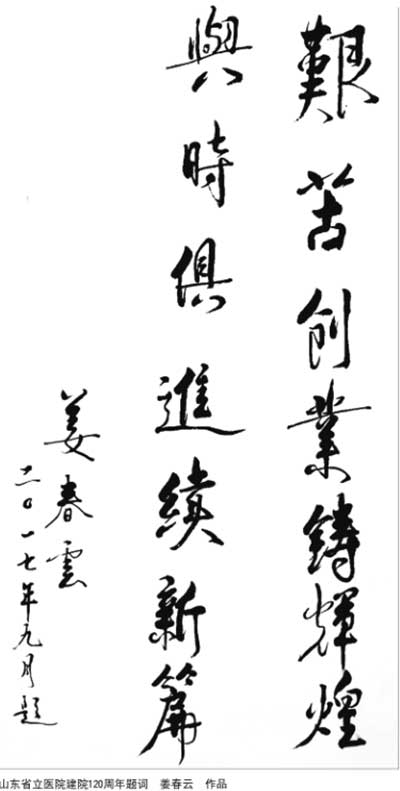 艱苦創業鑄輝煌
與時俱進續新篇
姜春雲
二〇一七年九月題
山东省立医院建院120周年题词 姜春云 作品